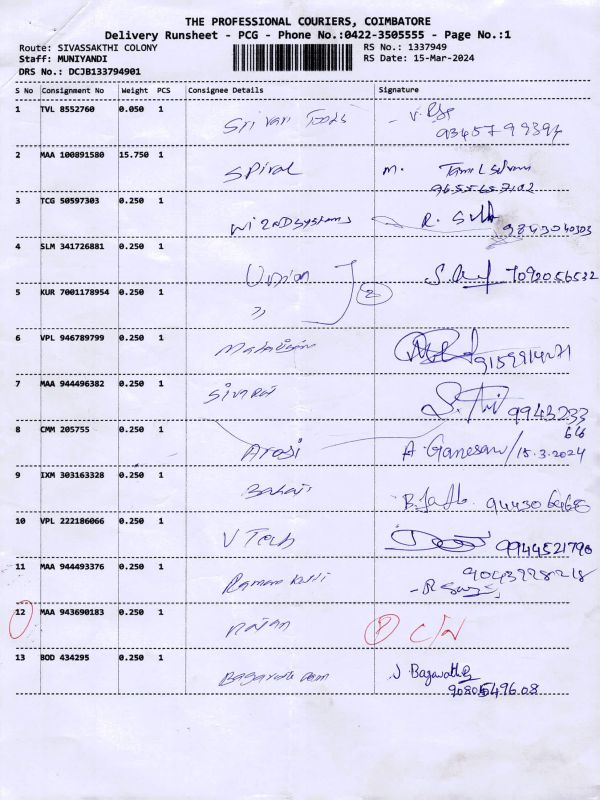 THE PROFESSIONAL COURIERS, COIMBATORE
Delivery Runsheet - PCG - Phone No.:0422-3505555 - Page No.:1
Route: SIVASSAKTHI COLONY RS No.: 1337949
Staff: MUNIYANDI RS Date: 15-Mar-2024
DRS No.: DCJB133794901
S No Consignment No Weight PCS Consignee Details Signature
1 TVL 8552760 0.050 1 Sri Vari Foods
2 MAA 100891580 15.750 1 Spiral M. Tamil Selvan
9655657102
3 TCG 50597303 0.250 1 systems R.
9843040303
4 SLM 341726881 0.250 1 Union S. 7092056532
5 KUR 7001178954 0.250 1 " 2
6 VPL 946789799 0.250 1
7 MAA 944496382 0.250 1 9943233
646
8 CMM 205755 0.250 1 Arasi A. Ganesan/15.3.2024
9 IXM 303163328 0.250 1
10 VPL 222186066 0.250 1 V Tech 9944521790
11 MAA 944493376 0.250 1
12 MAA 943690183 0.250 1
13 BOD 434295 0.250 1 J Bagavathi
9080549608